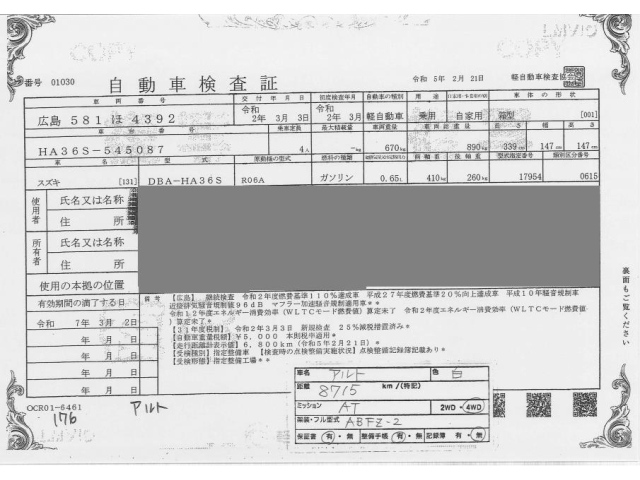 COPY
番号 01030
自動車検査証
令和 5年 2月 21日
軽自動車検査協会
車両番号
交付年月日
初度検査年月
自動車の種別
用途
自家用・事業用の別
車体の形状
広島 581 ほ 4392
令和 2年 3月 3日
令和 2年 3月
軽自動車
乗用
自家用
箱型
[001]
車台番号
乗車定員
最大積載量
車両重量
車両総重量
長さ
幅
高さ
HA36S-545087
4人
-kg
670kg
890kg
339cm
147cm
147cm
車名
型式
原動機の型式
燃料の種類
前軸重
後軸重
型式指定番号
類別区分番号
スズキ
[131]
DBA-HA36S
R06A
ガソリン
0.65L
410kg
260kg
17954
0615
使用者
氏名又は名称
住所
所有者
氏名又は名称
住所
使用の本拠の位置
有効期間の満了する日
令和 7年 3月 2日
年 月 日
年 月 日
年 月 日
備考
【広島】 継続検査 令和2年度燃費基準110%達成車 平成27年度燃費基準20%向上達成車 平成10年騒音規制車
近接排気騒音規制値96dB マフラー加速騒音規制適用車**
令和12年度エネルギー消費効率(WLTCモード燃費値)算定未了 令和2年度エネルギー消費効率(WLTCモード燃費値)算定未了*
【31年度税制】 令和2年3月3日 新規検査 25%減税措置済み*
【自動車重量税額】¥5,000 本則税率適用*
【走行距離計表示値】6,800km(令和5年2月21日)*
【受検種別】指定整備車 【検査時の点検整備実施状況】点検整備記録簿記載あり*
【受検形態】指定整備工場**
裏面もご覧ください
車名
アルト
色
白
距離
8715
km / (特記)
ミッション
AT
2WD・4WD
架装・フル型式
ABFZ-2
保証書 有・無
整備手帳 有・無
記録簿 有・無
OCR01-6461
176
アルト